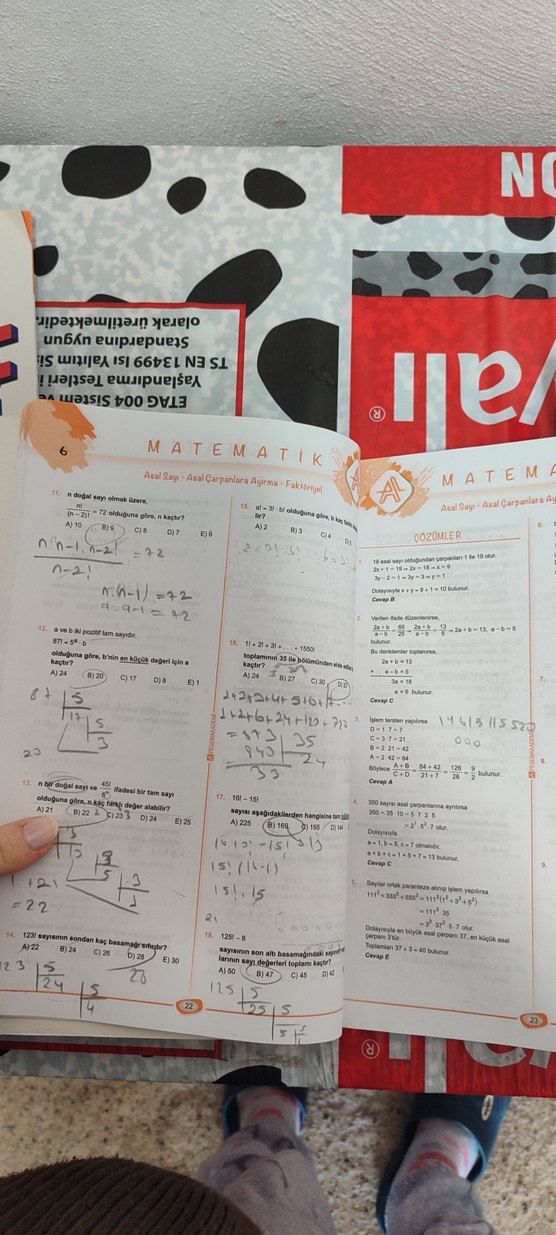 NO
yalı
®
ETAG 004 Sistem ve
Yaşlandırma Testleri
TS EN 13499 Isı Yalıtım Sis
Standardına uygun
olarak üretilmektedir.
6
MATEMATİK
Asal Sayı - Asal Çarpanlara Ayırma - Faktöriyel
11. n doğal sayı olmak üzere,
n!/(n – 2)! = 72 olduğuna göre, n kaçtır?
A) 10 B) 9 C) 8 D) 7 E) 6
n.n-1.n-2! = 72
n-2!
n.(n-1) = 72
9.9-1 = 72
12. a ve b iki pozitif tam sayıdır.
87! = 5ª · b
olduğuna göre, b'nin en küçük değeri için a
kaçtır?
A) 24 B) 20 C) 17 D) 8 E) 1
87 5
17 5
3
20
13. n bir doğal sayı ve 45!/6ⁿ ifadesi bir tam sayı
olduğuna göre, n kaç farklı değer alabilir?
A) 21 B) 22 C) 23 D) 24 E) 25
= 22
14. 123! sayısının sondan kaç basamağı sıfırdır?
A) 22 B) 24 C) 26 D) 28 E) 30
28
123 5
24 5
4
15. a! = 3! · b! olduğuna göre, b kaç farklı
lir?
A) 2 B) 3 C) 4 D)
16. 1! + 2! + 3! + . . . + 1550!
toplamının 35 ile bölümünden elde edilen
kaçtır?
A) 24 B) 27 C) 30 D) 33
1+2+6+24+120+720
= 873 35
840 24
33
17. 16! – 15!
sayısı aşağıdakilerden hangisine tam
A) 225 B) 169 C) 165 D) 144
15! (16-1)
15!.15
18. 125! – 8
sayısının son altı basamağındaki
larının sayı değerleri toplamı kaçtır?
A) 50 B) 47 C) 45 D) 42
125 5
25 5
5
22
PEGEMAKADEMİ
MATEMA
Asal Sayı - Asal Çarpanlara Ay
ÇÖZÜMLER
1. 19 asal sayı olduğundan çarpanları 1 ile 19 olur.
2x + 1 = 19 ⇒ 2x = 18 ⇒ x = 9
3y – 2 = 1 ⇒ 3y = 3 ⇒ y = 1
Dolayısıyla x + y = 9 + 1 = 10 bulunur.
Cevap B
2. Verilen ifade düzenlenirse,
(2a + b)/(a – b) = 65/25 ⇒ (2a + b)/(a – b) = 13/5 ⇒ 2a + b = 13, a – b = 5
bulunur.
Bu denklemler toplanırsa,
2a + b = 13
+ a – b = 5
3a = 18
a = 6 bulunur.
Cevap C
3. İşlem tersten yapılırsa
D = 1 · 7 = 7
C = 3 · 7 = 21
B = 2 · 21 = 42
A = 2 · 42 = 84
Böylece (A + B)/(C + D) = (84 + 42)/(21 + 7) = 126/28 = 9/2 bulunur.
Cevap A
000
4. 350 sayısı asal çarpanlarına ayrılırsa
350 = 35 · 10 = 5 · 7 · 2 · 5
= 2¹ · 5² · 7 olur.
Dolayısıyla
a = 1, b = 5, c = 7 olmalıdır.
a + b + c = 1 + 5 + 7 = 13 bulunur.
Cevap C
5. Sayılar ortak paranteze alınıp işlem yapılırsa
111² + 333² + 555² = 111²(1² + 3² + 5²)
= 111² · 35
= 3² · 37² · 5 · 7 olur.
Dolayısıyla en büyük asal çarpanı 37, en küçük asal
çarpanı 3'tür.
Toplamları 37 + 3 = 40 bulunur.
Cevap E
6.
7.
8.
9.
PEGEMAKADEMİ
23
®